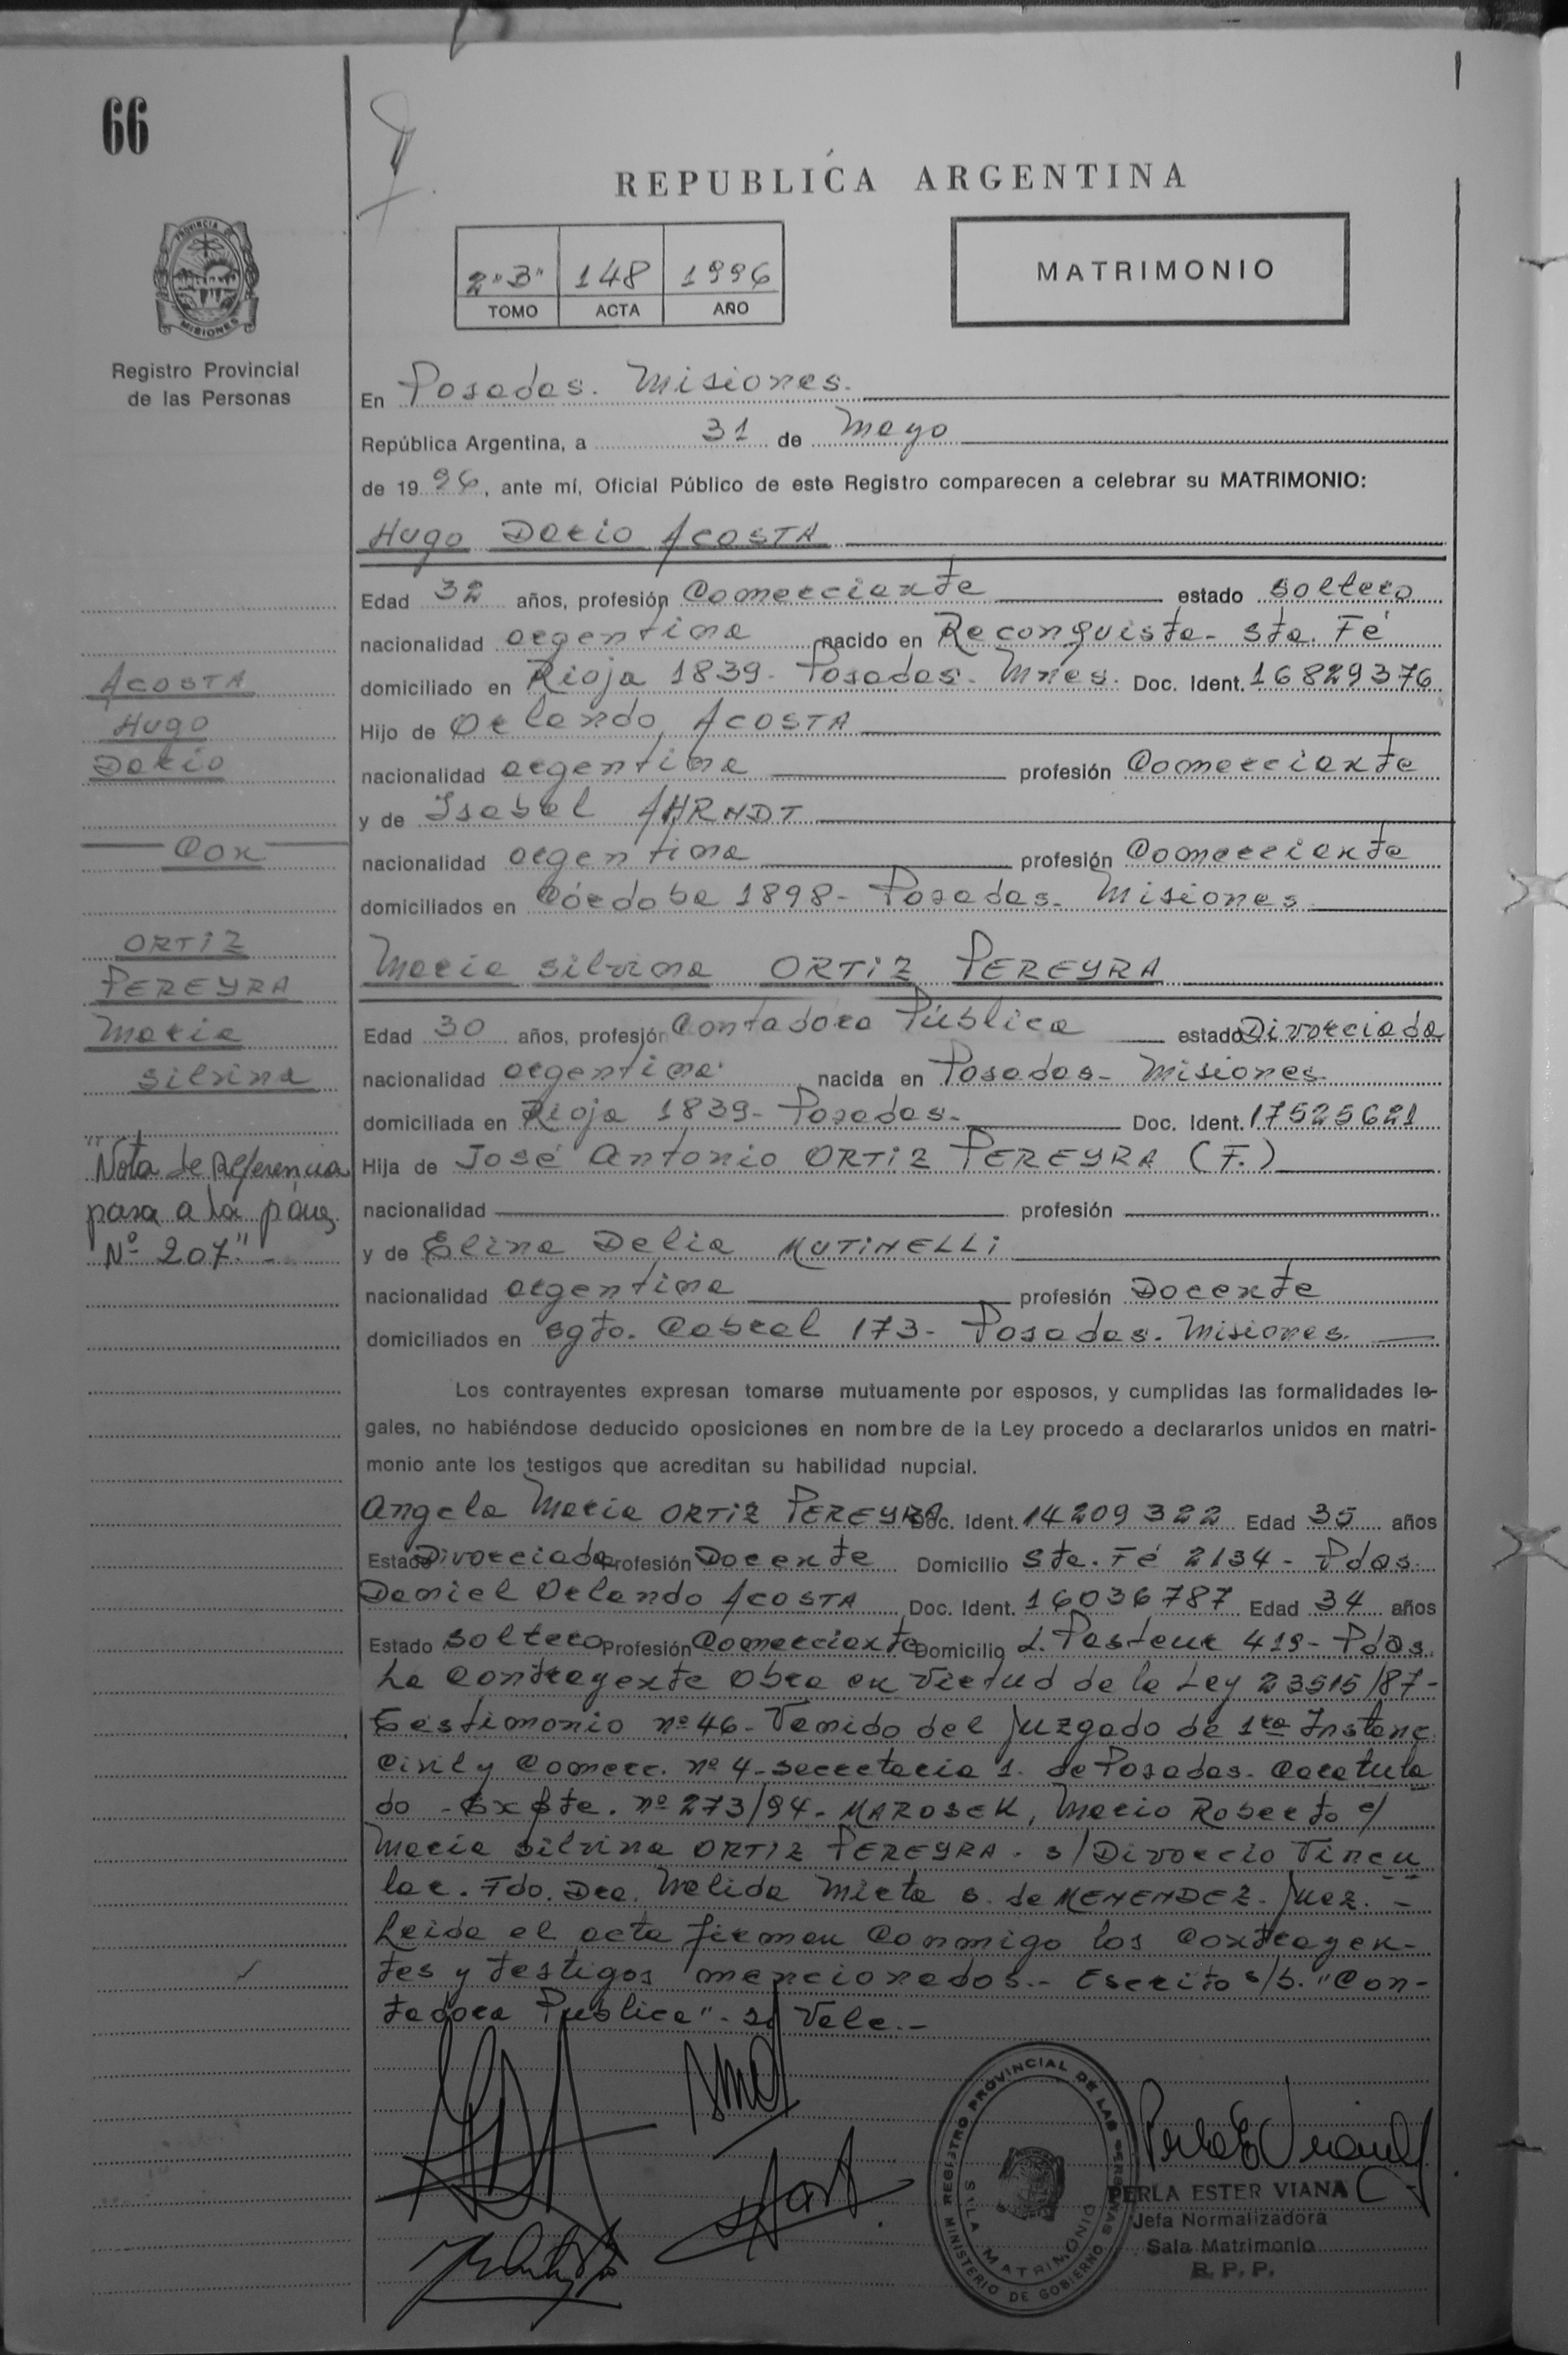 66
REPUBLICA ARGENTINA
PROVINCIA DE
MISIONES
Registro Provincial
de las Personas
2º"B" 148 1996
TOMO ACTA AÑO
MATRIMONIO
En Posadas. Misiones.
República Argentina, a 31 de Mayo
de 1996, ante mí, Oficial Público de este Registro comparecen a celebrar su MATRIMONIO:
Hugo Dario ACOSTA
Edad 32 años, profesión Comerciante estado soltero
nacionalidad argentina nacido en Reconquista - Sta. Fé
domiciliado en Rioja 1839 - Posadas - Mnes. Doc. Ident. 16829376
Hijo de Orlando ACOSTA
nacionalidad argentina profesión Comerciante
y de Isabel AHRNDT
nacionalidad argentina profesión Comerciante
domiciliados en Córdoba 1898 - Posadas - Misiones
ACOSTA
Hugo
Dario
Con
ORTIZ
PEREYRA
Maria
Silvina
"Nota de Referencia
pasa a la pág.
Nº 207" -
Maria Silvina ORTIZ PEREYRA
Edad 30 años, profesión Contadora Pública estado Divorciada
nacionalidad argentina nacida en Posadas - Misiones
domiciliada en Rioja 1839 - Posadas - Doc. Ident. 17525621
Hija de José Antonio ORTIZ PEREYRA (F.)
nacionalidad profesión
y de Elina Delia MUTINELLI
nacionalidad argentina profesión Docente
domiciliados en Sgto. Cabral 173 - Posadas - Misiones
Los contrayentes expresan tomarse mutuamente por esposos, y cumplidas las formalidades le-
gales, no habiéndose deducido oposiciones en nombre de la Ley procedo a declararlos unidos en matri-
monio ante los testigos que acreditan su habilidad nupcial.
Angela Maria ORTIZ PEREYRA Doc. Ident. 14209322 Edad 35 años
Estado Divorciada Profesión Docente Domicilio Sta. Fé 2134 - Pdas.
Daniel Orlando ACOSTA Doc. Ident. 16036787 Edad 34 años
Estado soltero Profesión Comerciante Domicilio L. Pasteur 419 - Pdas.
La Contrayente Obra en Virtud de la Ley 23515/87 -
Testimonio nº 46 - Venido del Juzgado de 1ra Instanc.
Civil y Comerc. nº 4 - Secretaria 1. de Posadas - Caratula
do - Expte. nº 273/94 - MAROSEK, Mario Roberto c/
Maria Silvina ORTIZ PEREYRA - s/ Divorcio Vincu
lar. Fdo. Dra. Nelida Mirta S. de MENENDEZ - Juez. -
Leida el acta firman Conmigo los Contrayen-
tes y testigos mencionados. - Escrito s/b. "Con-
tadora Publica" - si Vale. -
REGISTRO PROVINCIAL DE LAS PERSONAS
SALA MATRIMONIO
MINISTERIO DE GOBIERNO
PERLA ESTER VIANA
Jefa Normalizadora
Sala Matrimonio
R. P. P.